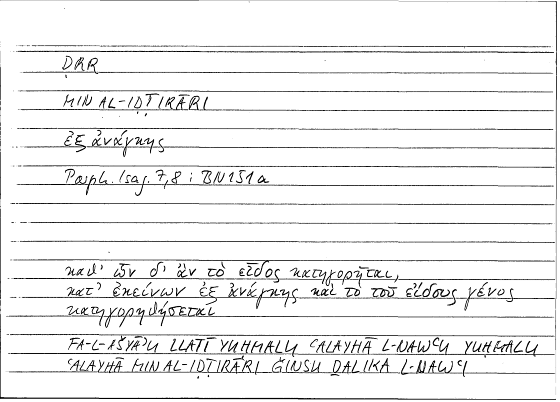 ḌRR
MIN AL-IḌṬIRĀRI
ἐξ ἀνάγκης
Porph. Isag. 7,8 : BN151a
καθ' ὧν δ' ἂν τὸ εἶδος κατηγορῆται,
κατ' ἐκείνων ἐξ ἀνάγκης καὶ τὸ τοῦ εἴδους γένος
κατηγορηθήσεται
FA-L-AŠYĀʾU LLATĪ YUḤMALU ʿALAYHĀ L-NAWʿU YUḤMALU
ʿALAYHĀ MIN AL-IḌṬIRĀRI ǦINSU ḎALIKA L-NAWʿI